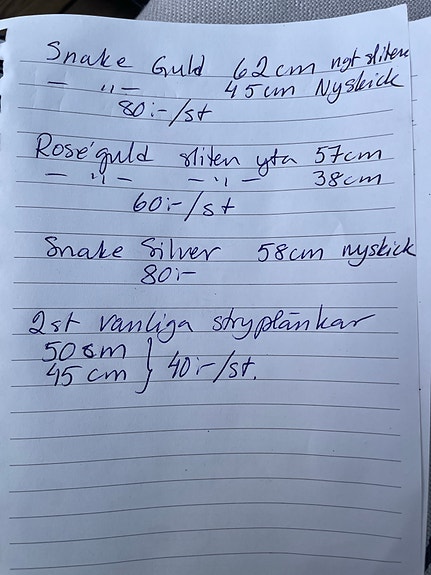 Snake Guld 62cm ngt sliten
— " — 45cm Nyskick
80:-/st
Rosé guld sliten yta 57cm
— " — — " — 38cm
60:-/st
Snake Silver 58cm nyskick
80:-
2st vanliga stryplänkar
50cm
45 cm } 40:-/st.